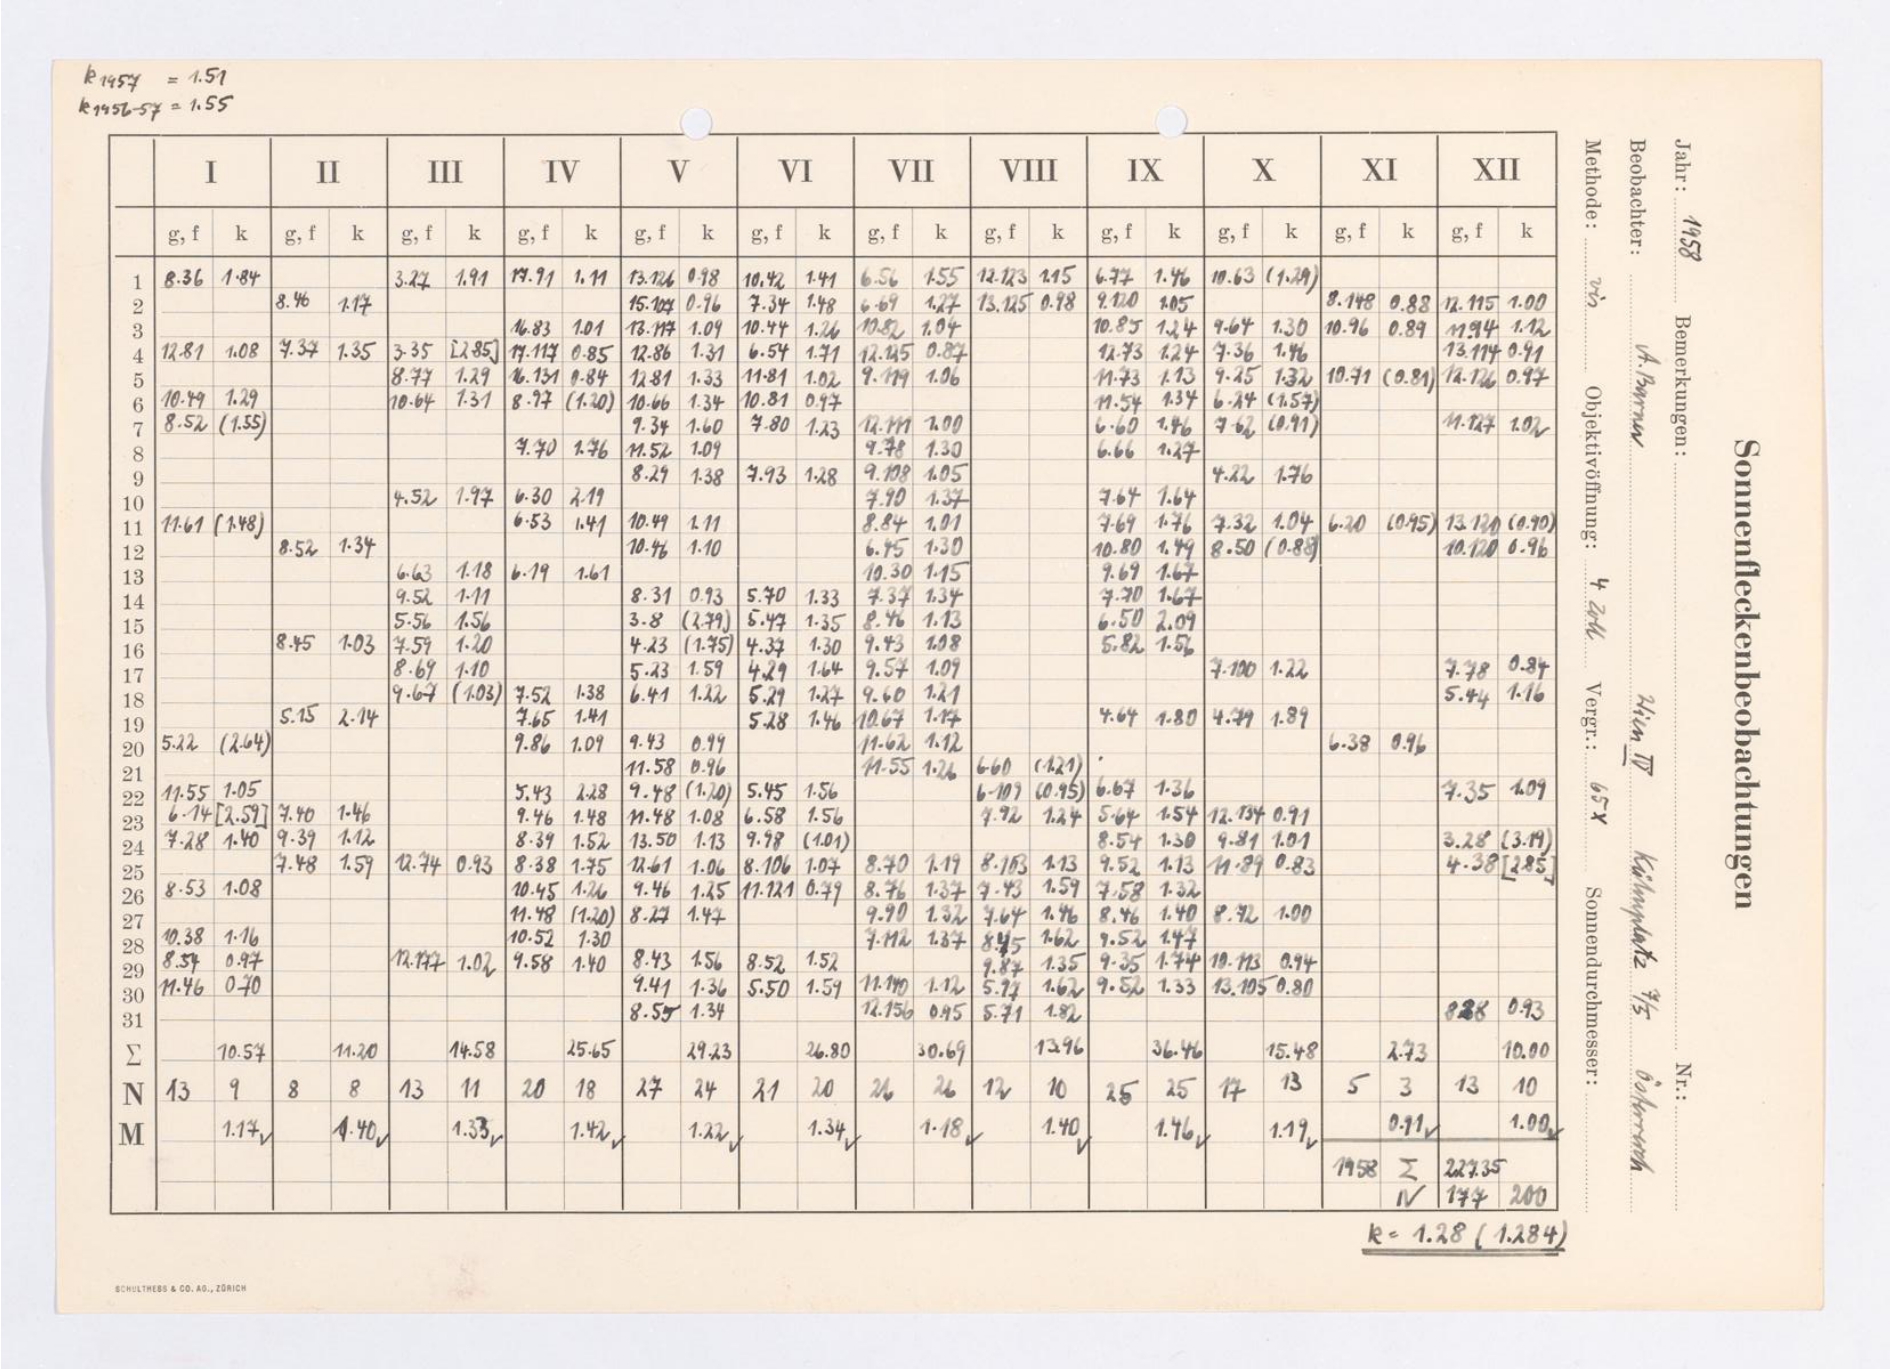 k 1957 = 1.51
k 1956-57 = 1.55
I II III IV V VI VII VIII IX X XI XII
g, f k g, f k g, f k g, f k g, f k g, f k g, f k g, f k g, f k g, f k g, f k g, f k
1 8.36 1.84 3.27 1.91 17.91 1.11 13.126 0.98 10.42 1.41 6.56 1.55 12.123 1.15 6.77 1.46 10.63 (1.29)
2 8.46 1.17 15.107 0.96 7.34 1.48 6.69 1.27 13.125 0.98 9.120 1.05 8.148 0.88 12.115 1.00
3 16.83 1.01 13.117 1.09 10.44 1.26 10.82 1.04 10.85 1.24 9.64 1.30 10.96 0.89 11.94 1.12
4 12.81 1.08 7.37 1.35 3.35 [2.85] 17.117 0.85 12.86 1.31 6.54 1.71 12.125 0.87 12.73 1.24 7.36 1.46 13.114 0.91
5 8.77 1.29 16.131 0.84 12.81 1.33 11.81 1.02 9.119 1.06 11.73 1.13 9.25 1.32 10.71 (0.81) 12.126 0.97
6 10.49 1.29 10.64 1.31 8.97 (1.20) 10.66 1.34 10.81 0.97 11.54 1.34 6.24 (1.57)
7 8.52 (1.55) 9.34 1.60 7.80 1.23 12.111 1.00 6.60 1.46 7.62 (0.91) 11.127 1.02
8 7.70 1.76 11.52 1.09 9.78 1.30 6.66 1.27
9 8.29 1.38 7.93 1.28 9.108 1.05 4.22 1.76
10 4.52 1.97 6.30 2.19 7.90 1.37 7.64 1.64
11 11.61 (1.48) 6.53 1.41 10.49 1.11 8.84 1.01 7.69 1.76 7.32 1.04 6.20 (0.95) 13.120 (0.90)
12 8.52 1.34 10.46 1.10 6.45 1.30 10.80 1.49 8.50 (0.88) 10.120 0.96
13 6.63 1.18 6.19 1.61 10.30 1.15 9.69 1.67
14 9.52 1.11 8.31 0.93 5.70 1.33 7.37 1.34 7.70 1.67
15 5.56 1.56 3.8 (2.79) 5.47 1.35 8.46 1.13 6.50 2.09
16 8.45 1.03 7.59 1.20 4.23 (1.75) 4.37 1.30 9.43 1.08 5.82 1.56
17 8.69 1.10 5.23 1.59 4.29 1.64 9.57 1.09 7.100 1.22 7.78 0.84
18 9.67 (1.03) 7.52 1.38 6.41 1.22 5.29 1.27 9.60 1.21 5.44 1.16
19 5.15 2.14 7.65 1.41 5.28 1.46 10.67 1.17 4.64 1.80 4.79 1.89
20 5.22 (2.64) 9.86 1.09 9.43 0.99 11.62 1.12 6.38 0.96
21 11.58 0.96 11.55 1.26 6.60 (1.21)
22 11.55 1.05 5.43 2.28 9.48 (1.20) 5.45 1.56 6.109 (0.95) 6.67 1.36 7.35 1.09
23 6.14 [2.59] 7.40 1.46 9.46 1.48 11.48 1.08 6.58 1.56 7.92 1.24 5.64 1.54 12.134 0.91
24 7.28 1.40 9.39 1.12 8.39 1.52 13.50 1.13 9.98 (1.01) 8.54 1.30 9.81 1.01 3.28 (3.19)
25 7.48 1.59 12.74 0.93 8.38 1.75 12.61 1.06 8.106 1.07 8.70 1.19 8.103 1.13 9.52 1.13 11.89 0.83 4.38 [2.85]
26 8.53 1.08 10.45 1.26 9.46 1.25 11.121 0.79 8.76 1.37 7.43 1.59 7.58 1.32
27 11.48 (1.20) 8.27 1.47 9.90 1.32 7.64 1.46 8.46 1.40 8.72 1.00
28 10.38 1.16 10.52 1.30 7.112 1.37 8.45 1.62 9.52 1.47
29 8.54 0.97 12.177 1.02 9.58 1.40 8.43 1.56 8.52 1.52 9.87 1.35 9.35 1.74 10.113 0.94
30 11.46 0.70 9.41 1.36 5.50 1.59 11.140 1.12 5.97 1.62 9.52 1.33 13.105 0.80
31 8.55 1.34 12.156 0.95 5.71 1.82 8.28 0.93
Σ 10.57 11.20 14.58 25.65 29.23 26.80 30.69 13.96 36.46 15.48 2.73 10.00
N 13 9 8 8 13 11 20 18 27 24 21 20 26 26 12 10 25 25 17 13 5 3 13 10
M 1.17✓ 1.40✓ 1.33✓ 1.42✓ 1.22✓ 1.34✓ 1.18✓ 1.40✓ 1.46✓ 1.19✓ 0.91✓ 1.00✓
1958 Σ 227.35
N 177 200
k = 1.28 (1.284)
SCHULTHESS & CO. AG., ZÜRICH
Sonnenfleckenbeobachtungen
Jahr: 1958 Bemerkungen: Nr.:
Beobachter: Wien IV Kühnplatz 7/5 Österreich
Methode: vis Objektivöffnung: 4 Zoll Vergr.: 65x Sonnendurchmesser: